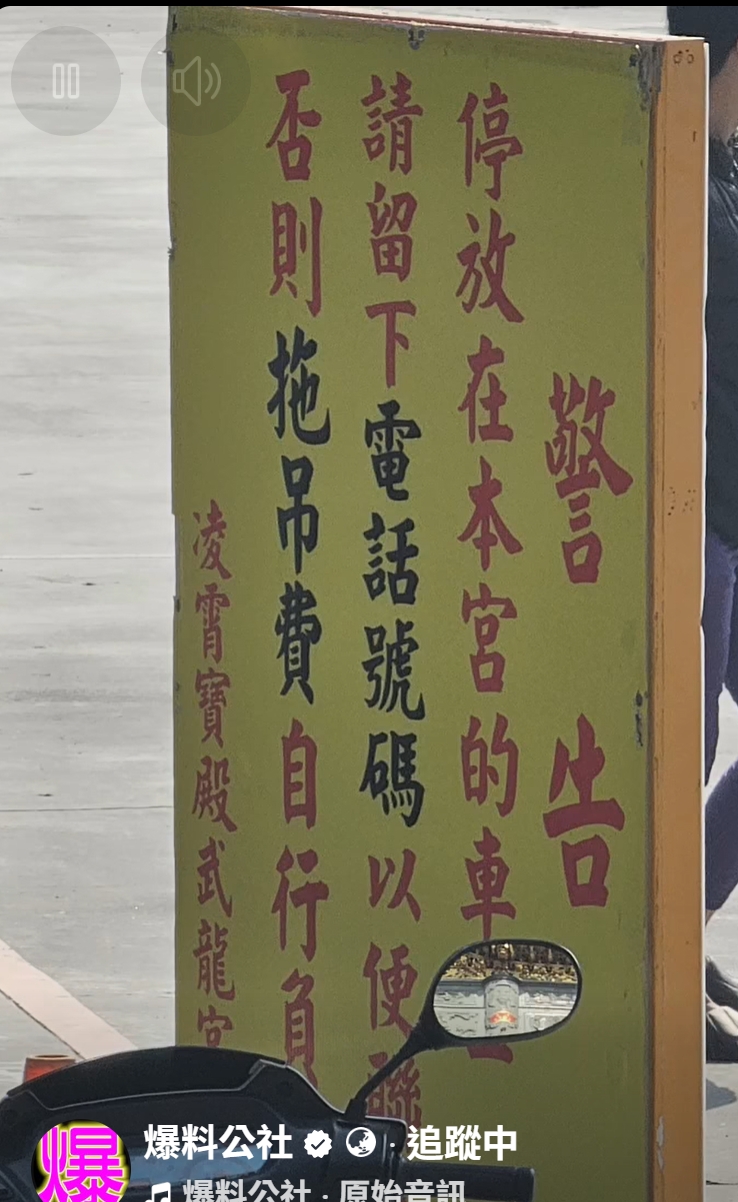 警告
停放在本宮的車
請留下電話號碼以便聯
否則拖吊費自行負
凌霄寶殿武龍宮
爆
爆料公社 · 追蹤中
爆料公社 · 原始音訊